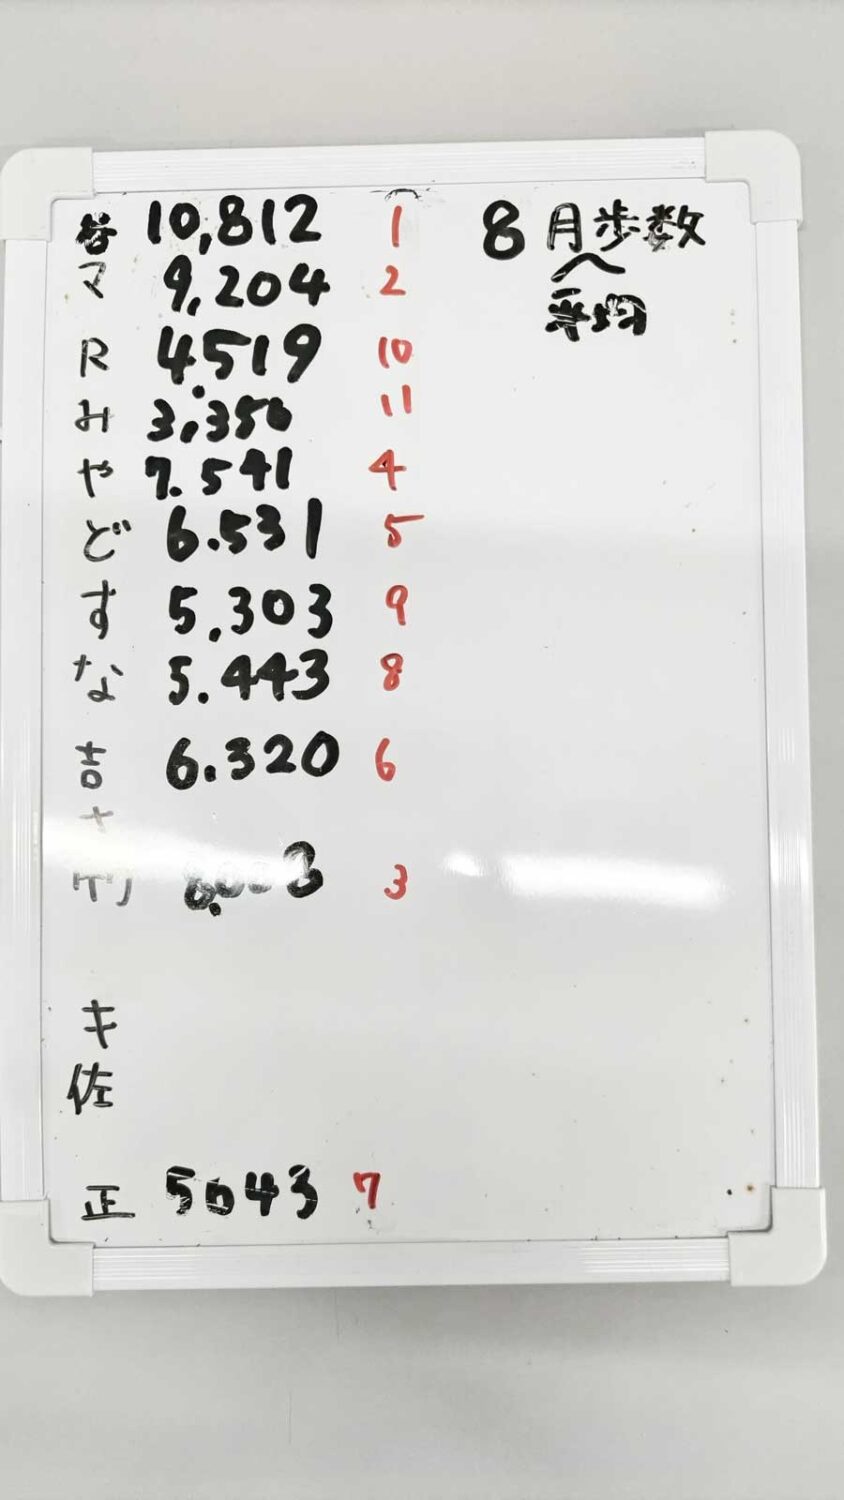 谷 10,812 1 8月歩数
マ 9,204 2 平均
R 4519 10
み 3,350 11
や 7.541 4
ど 6.531 5
す 5,303 9
な 5.443 8
吉 6.320 6
3
キ
佐
正 5643 7